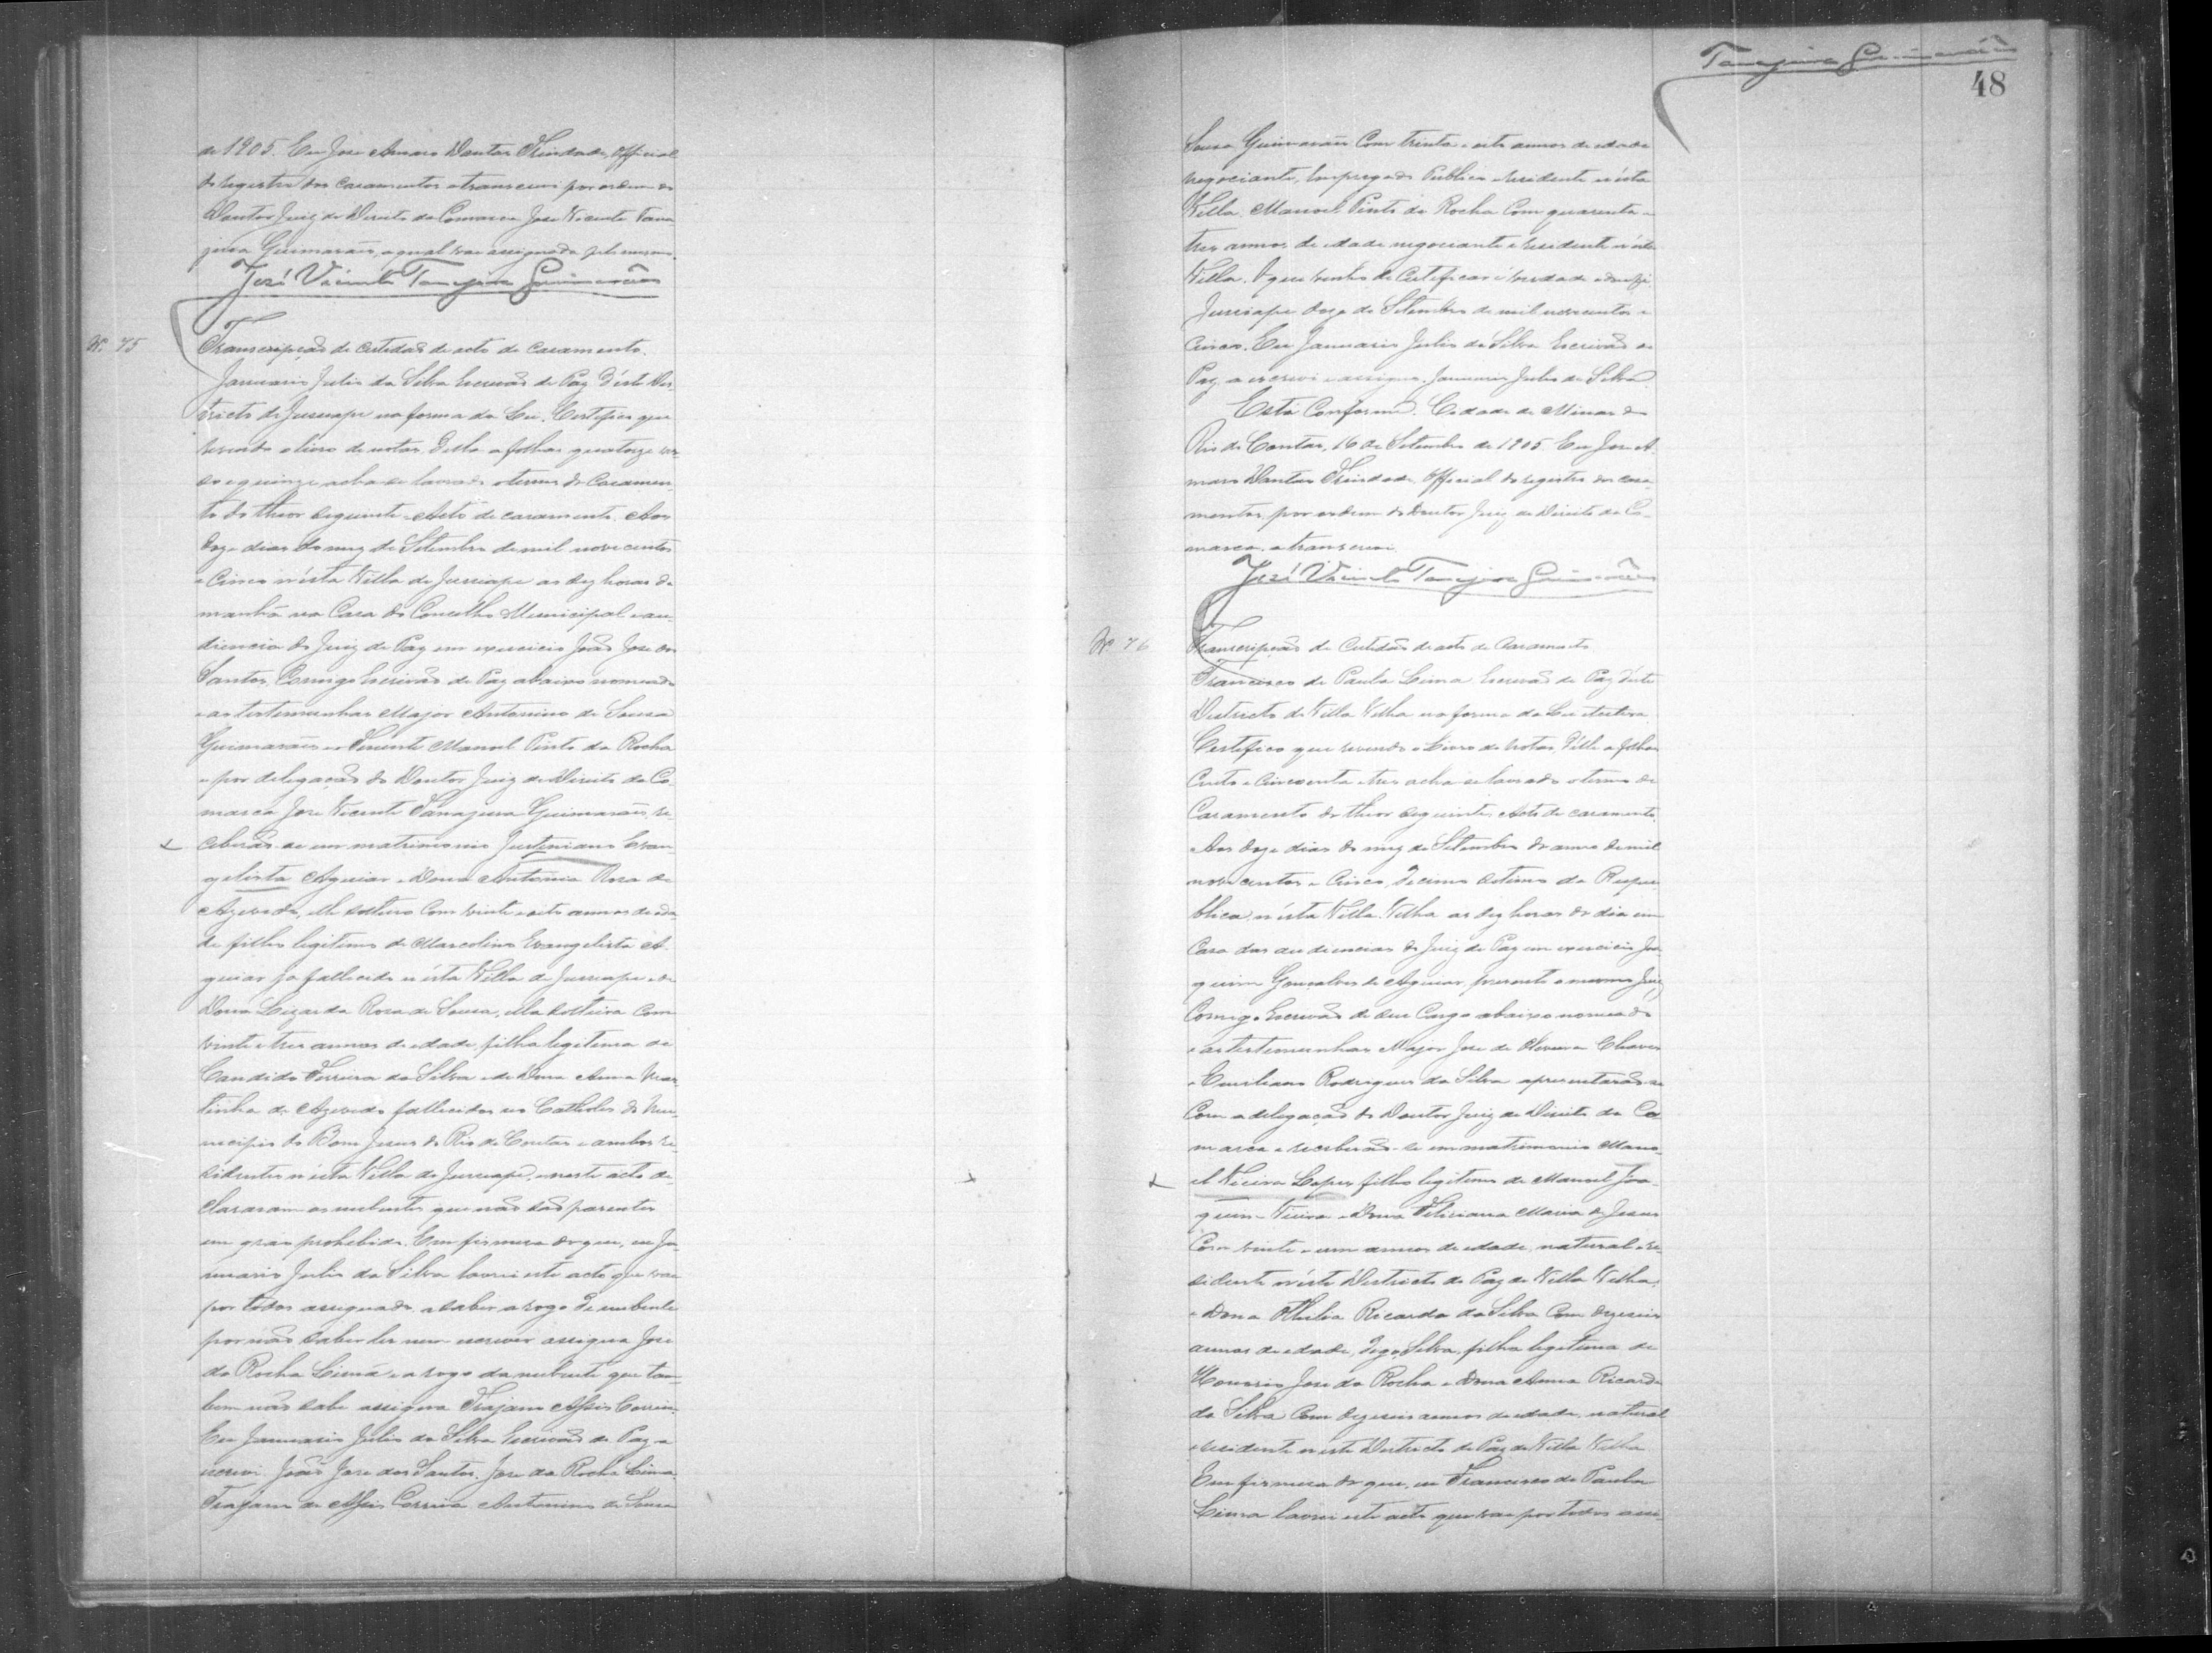 de 1905. Eu Jose Amaro Dantas Trindade, Official
do registro dos casamentos a transcrevi por ordem do
Doutor Juiz de Direito da Comarca Jose Vicente Tana
jura Guimarães, a qual vae assignada pelo mesmo.
José Vicente Tanajura Guimarães
Nº 75
Transcripção de certidão de acto de casamento.
Januario Julio da Silva Escrivão de Paz d'este Des
tricto de Jussiape na forma da Lei. Certifico que
revendo o livro de notas, d'elle a folhas quatorze ver
so e quinze acha-se lavrado o termo de Casamen
to do theor seguinte. Acto de casamento. Aos
doze dias do mez de Setembro de mil nove centos
e Cinco n'ésta Villa de Jussiape as dez horas da
manhã na Casa do Concelho Municipal e au
diencia do Juiz de Paz em exercicio João Jose dos
Santos, Comigo Escrivão de Paz abaixo nomeado
e as testemunhas Major Antonino de Sousa
Guimarães e o Tenente Manoel Pinto da Rocha
e por delegação do Doutor Juiz de Direito da Co
marca Jose Vicente Tanajura Guimarães, re
ceberão-se em matrimonio Justiniano Evan
gelista Aguiar e Dona Antonia Rosa de
Azevedo, elle solteiro com vinte e oito annos de ida
de filho legitimo de Marcolino Evangelista A
guiar já fallecido n'ésta Villa de Jussiape e de
Dona Lizarda Rosa de Sousa, ella solteira com
vinte e tres annos de edade, filha legitima de
Candido Ferreira da Silva e de Dona Anna Mar
tinha de Azevedo fallecidos no Catholes do Mu
nicipio do Bom Jesus do Rio de Contas e ambos re
sidentes n'ésta Villa de Jussiape, e neste acto de
clararam os nubentes que não são parentes
em gráo prohibido. Em firmesa do que, eu Ja
nuario Julio da Silva lavrei este acto que vae
por todos assignado, a saber, a rogo do nubente
por não saber ler nem escrever assigna Jose
da Rocha Lima, e a rogo da nubente que tam
bem não sabe assigna Trajano Assis Correia.
Eu Januario Julio da Silva Escrivão de Paz o
escrevi. João Jose dos Santos. Jose da Rocha Lima.
Trajano de Assis Correia Antonino de Sousa
Tanajura Guimarães
48
Sousa Guimarães Com trinta e oito annos de edade
negociante, Empregado Publico e residente n'ésta
Villa. Manoel Pinto da Rocha Com quarenta e
tres annos de edade negociante e residente n'ésta
Villa. O que venho de Certificar é verdade e dou fé.
Jussiape doze de Setembro de mil novecentos e
Cinco. Eu Januario Julio da Silva Escrivão de
Paz, o escrevi e assigno. Januario Julio da Silva.
Está Conforme. Cidade de Minas do
Rio de Contas, 16 de Setembro de 1905. Eu Jose A
maro Dantas Trindade, Official do registro dos casa
mentos, por ordem do Doutor Juiz de Direito da Co
marca, a transcrevi.
José Vicente Tanajura Guimarães
Nº 76
Transcripção de Certidão de acto de Casamento
Francisco de Paula Lima Escrivão de Paz d'este
Districto da Villa Velha na forma da Lei etcetera
Certifico que revendo o Livro de notas, d'elle a folhas
Cento e Cincoenta e tres acha-se lavrado o termo de
Casamento do theor seguinte. Acto de casamento.
Aos doze dias do mez de Setembro do anno de mil
nove centos e Cinco, decimo setimo da Repu
blica, n'ésta Villa Velha as dez horas do dia em
Casa das audiencias do Juiz de Paz em exercicio Joa
quim Gonçalves de Aguiar, presente o mesmo Juiz
Comigo Escrivão de seu Cargo abaixo nomeado
e as testemunhas Major Jose de Oliveira Chaves
e Emiliano Rodrigues da Silva apresentarão-se
Com a delegação do Doutor Juiz de Direito da Co
marca e receberão-se em matrimonio Mano
el Vieira Lopes filho legitimo de Manoel Joa
quim Vieira e Dona Feliciana Maria de Jesus
Com vinte e um annos de edade, natural e re
sidente n'éste Districto de Paz da Villa Velha,
e Dona Othilia Ricarda da Silva Com dezeseis
annos de edade, digo, Silva, filha legitima de
Honorio Jose da Rocha e Dona Anna Ricarda
da Silva Com dezeseis annos de edade, natural
e residente n'este Districto de Paz da Villa Velha
Em firmesa do que, eu Francisco de Paula
Lima lavrei este acto que vae por todos assi